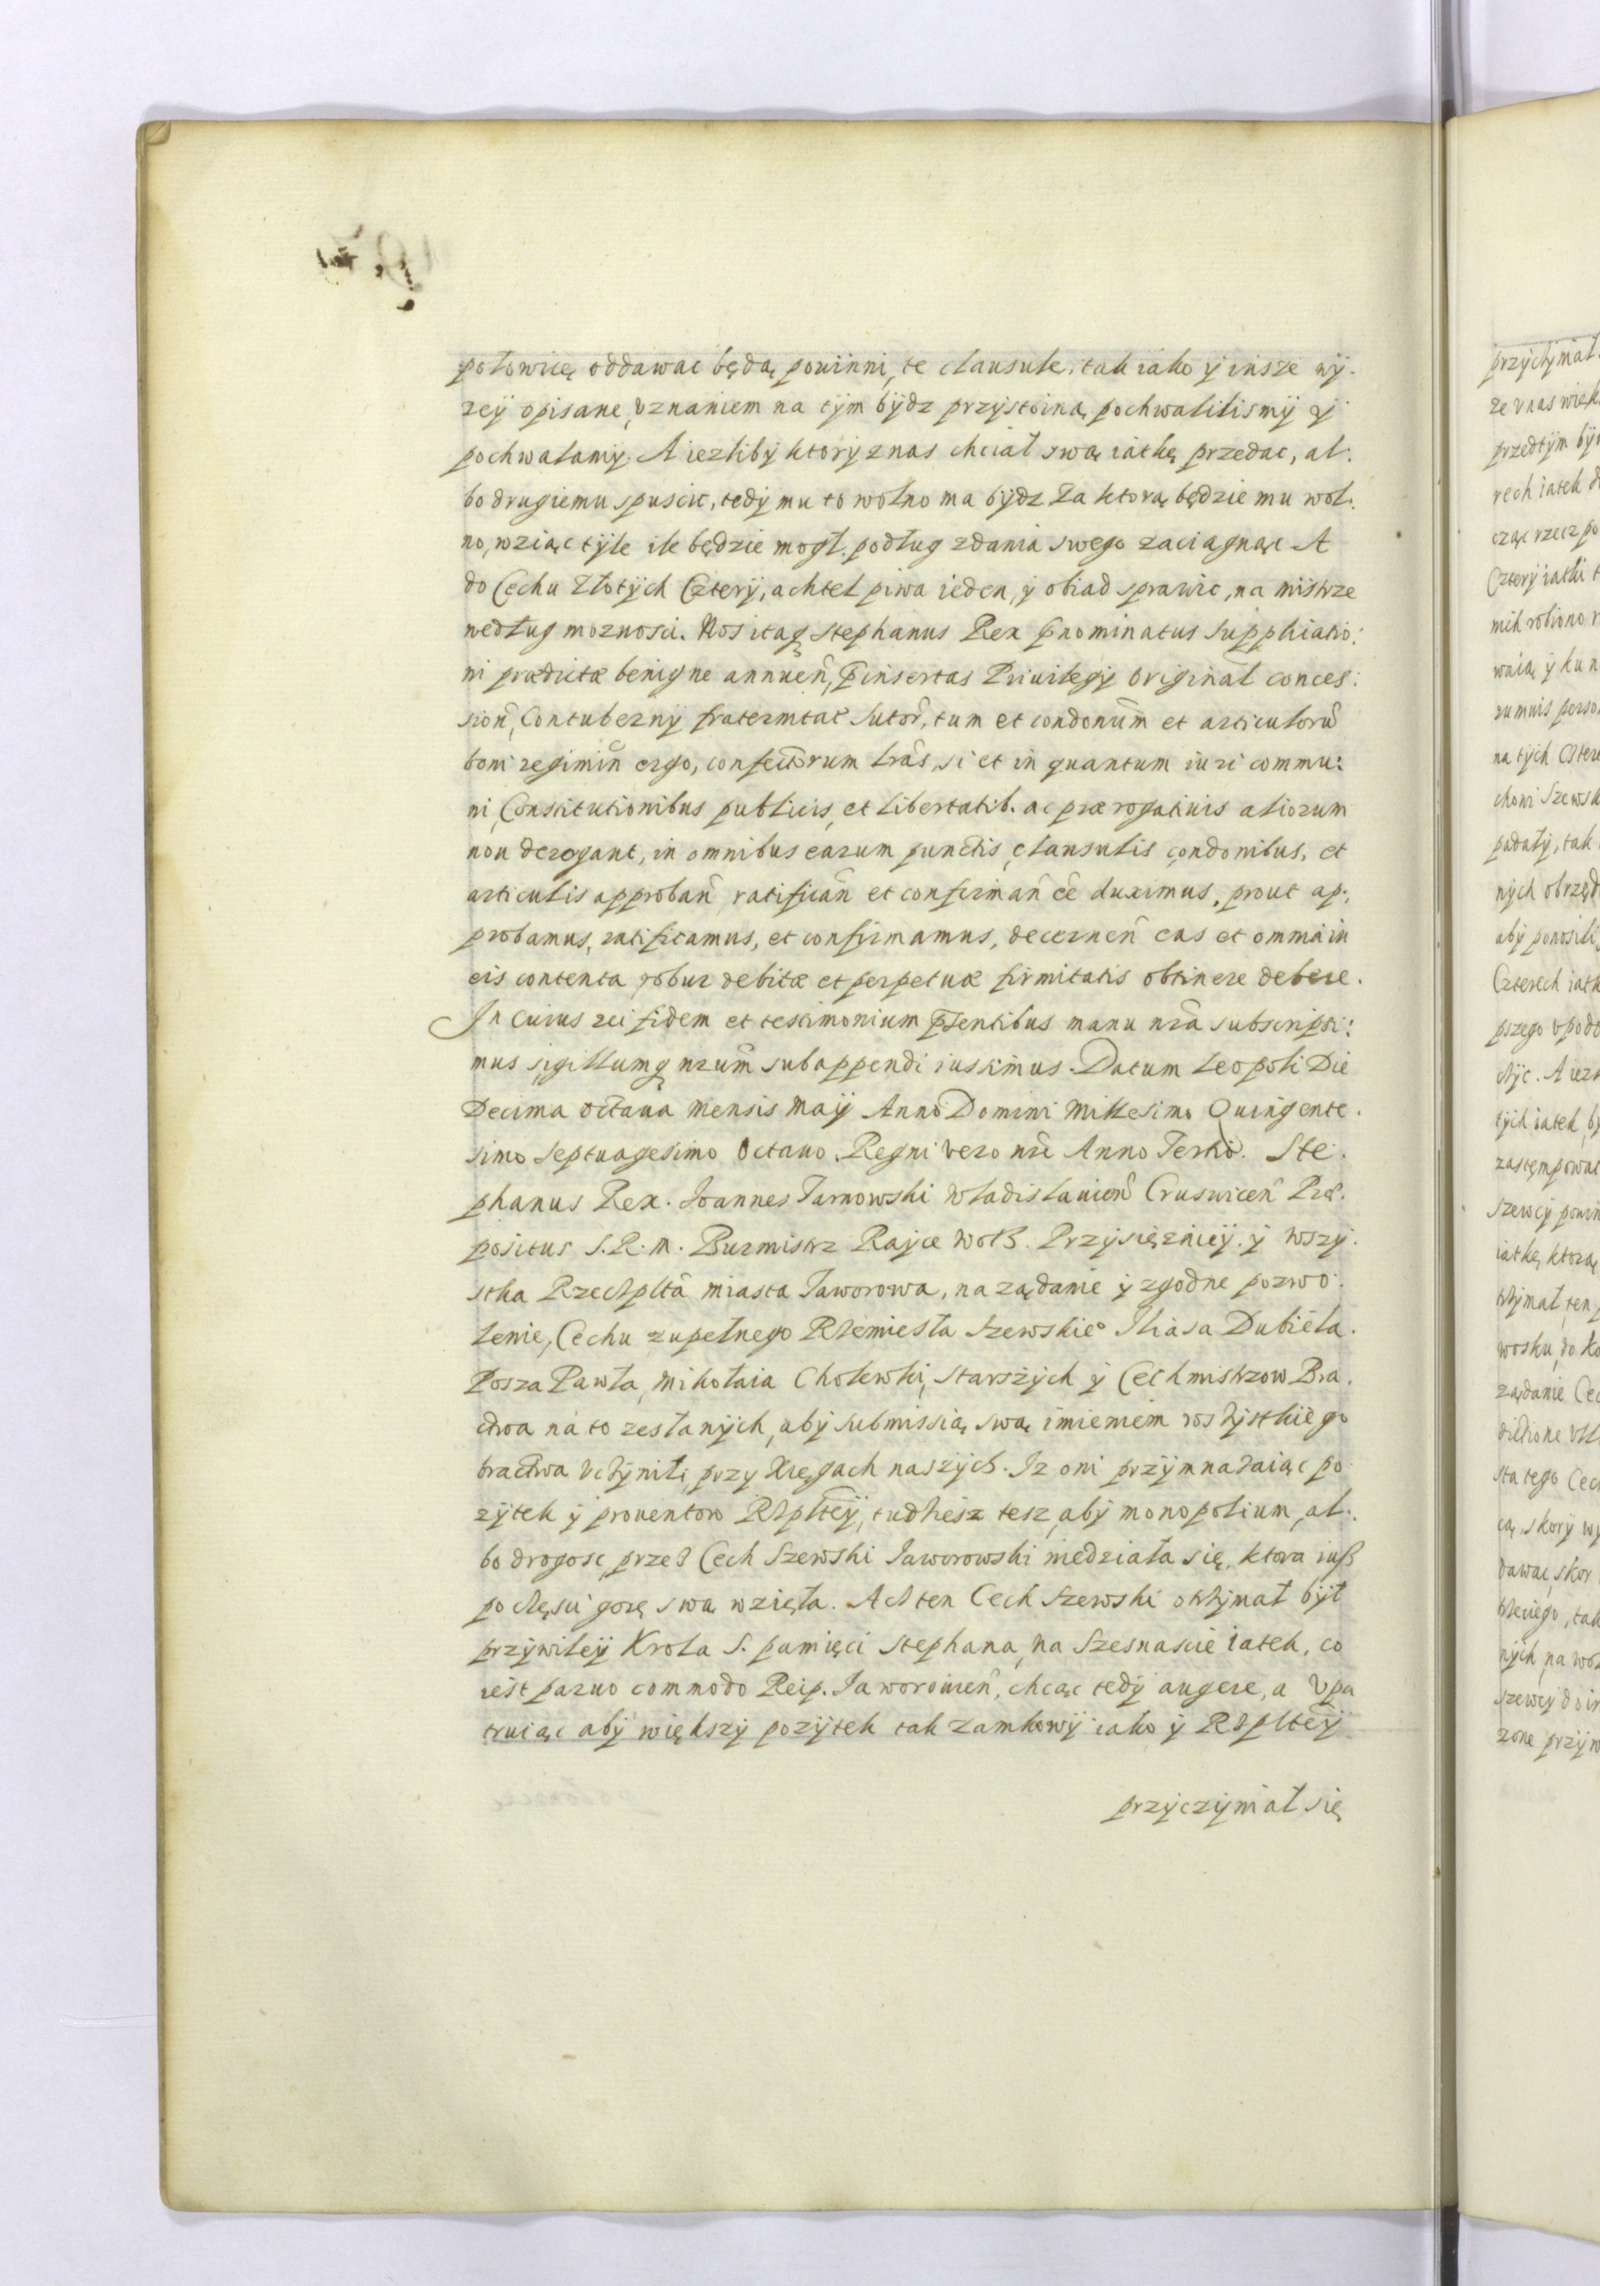 połowicę oddawac będą powinni, te clausule, tak iako ÿ insze wÿ.
zeÿ opisane, vznaniem na tÿm bÿdz przÿstoiną pochwalilismÿ ÿ
pochwalamÿ. A iezlibÿ ktorÿ znas chciał swą iatkę przedac, al.
bo drugiemu spuscic, tedÿ mu to wolno ma bÿdz Za ktorą będzie mu wol.
no, wziąc tÿle ile będzie mogł podług zdania swego zaciągnąc A
do Cechu Złotÿch Czterÿ, achtel piwa ieden, ÿ obiad sprawic, na mistrze
według moznosci. Nos itaq stephanus Rex p̄nominatus supplicatio:
ni prædictæ benigne annuen̄, p̄insertas Priuilegÿ Original conces:
sion̄, Contubernÿ fraternitat̄ sutor̄, tum et condonum̄ et articulorū
boni regimin̄ ergo, confectorum l̄ras, si et in quantum iuri commu:
ni, Constitutionibus publicis, et libertatib. ac prærogatiuis aliorum
non derogant, in omnibus earum punctis, clausulis condonibus, et
articulis approban̄ ratifican̄ et confirman̄ eē duximus, prout ap:
probamus, ratificamus, et confirmamus, decernen̄ eas et omnia in
eis contenta robur debitæ et perpetuæ firmitatis obtinere debere.
In cuius rei fidem et testimonium p̄sentibus manu nr̄a subscripsi:
mus sigillumq nrum̄ subappendi iussimus. Datum Leopoli Die
Decima octaua Mensis Maÿ Anno Domini Millesimo Quingente.
simo septuagesimo Octauo Regni vero nr̄i Anno Tertio. Ste.
phanus Rex. Ioannes Tarnowski Wladislauien̄ Cruswicen̄ Præ.
positus S. R. M. Burmistrz Rayce woÿt. Przÿsięzniecÿ ÿ wszÿ.
stka Rzeczplta miasta Jaworowa, na ządanie ÿ zgodne pozwo.
lenie, Cechu zupełnego Rzemiesła szewskie° Iliasa Dubiela.
Posza Pawła, mikołaia Cholewki, starszÿch ÿ Cechmistrzow Bra.
ctwa na to zesłanÿch, abÿ submissią swą imieniem wszÿstkiego
bractwa vczÿnili, przy Xięgach naszÿch. Iz oni przÿmnazaiąc po
zÿtek ÿ prouentow Rzpltēÿ, tudziesz tesz, abÿ monopolium, al.
bo drogosc, przez Cech szewski Jaworowski niedziała się, ktora iuß
po częsci gorę swą wzięła. Acz ten Cech szewski otrzÿmał bÿł
przÿwileÿ Krola S. pamięci Stephana, na Szesnascie iatek, co
iest paruo commodo Reip. Jaworouien̄, chcąc tedÿ augere, a vpa
truiąc abÿ większÿ pozÿtek tak zamkowÿ iako ÿ Rzpltēÿ
przÿczÿniał się